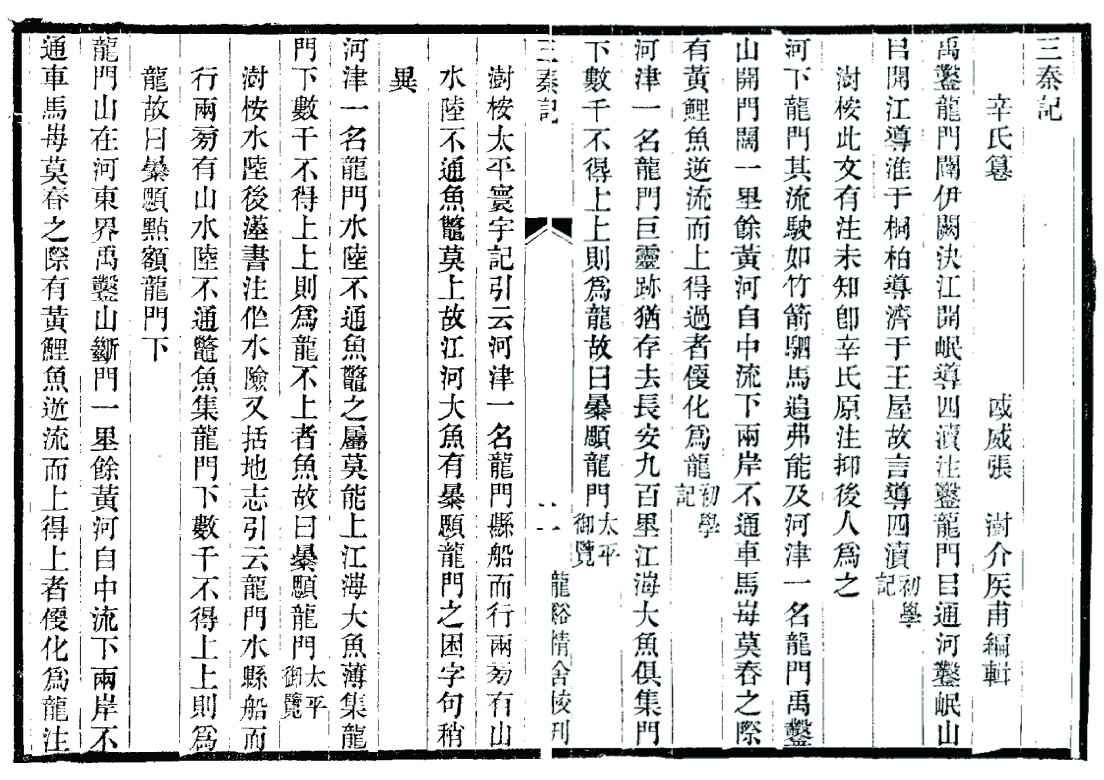 三秦記
辛氏篹　武威張　澍介矦甫編輯
禹鑿龍門闢伊闕決江開岷導四瀆注鑿龍門㠯通河鑿岷山
㠯開江導淮于桐柏導濟于王屋故言導四瀆初學記
澍桉此文有注未知卽辛氏原注抑後人爲之
河下龍門其流駛如竹箭駟馬追弗能及河津一名龍門禹鑿
山開門闊一里餘黃河自中流下兩岸不通車馬每莫春之際
有黃鯉魚逆流而上得過者便化爲龍初學記
河津一名龍門巨靈跡猶存去長安九百里江海大魚俱集門
下數千不得上上則爲龍故曰曓顋龍門太平御覽
三秦記　一　龍谿精舍校刊
澍桉太平寰宇記引云河津一名龍門縣船而行兩旁有山
水陸不通魚鼈莫上故江河大魚有曓顋龍門之困字句稍
異
河津一名龍門水陸不通魚鼈之屬莫能上江海大魚薄集龍
門下數千不得上上則爲龍不上者魚故曰曓顋龍門太平御覽
澍桉水陸後漢書注作水險又括地志引云龍門水縣船而
行兩旁有山水陸不通鼈魚集龍門下數千不得上上則爲
龍故曰曓顋點額龍門下
龍門山在河東界禹鑿山斷門一里餘黃河自中流下兩岸不
通車馬每莫春之際有黃鯉魚逆流而上得上者便化爲龍注